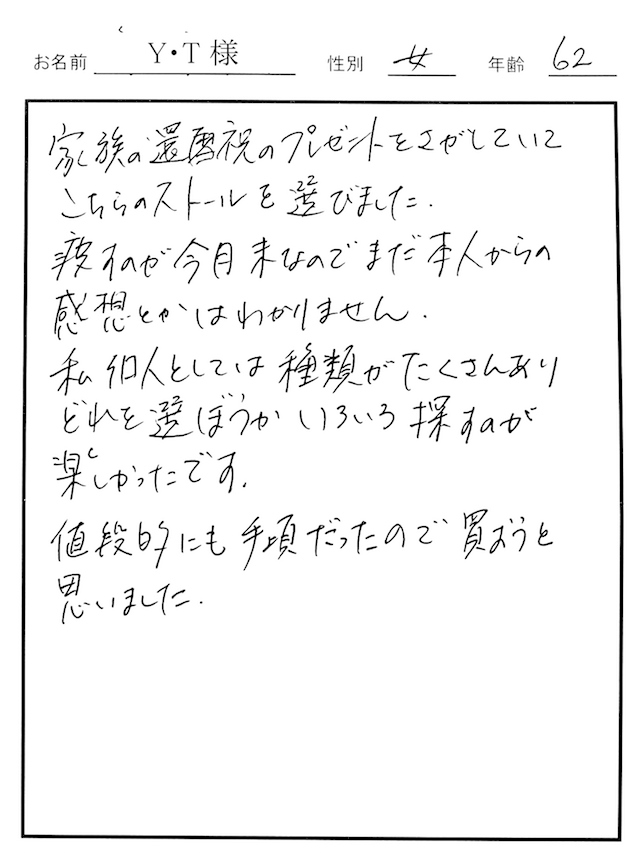 お名前 Y・T 様 性別 女 年齢 62
家族の還暦祝のプレゼントをさがしていて
こちらのストールを選びました.
渡すのが今月末なのでまだ本人からの
感想とかはわかりません.
私個人としては種類がたくさんあり
どれを選ぼうかいろいろ探すのが
楽しかったです.
値段的にも手頃だったので買おうと
思いました.